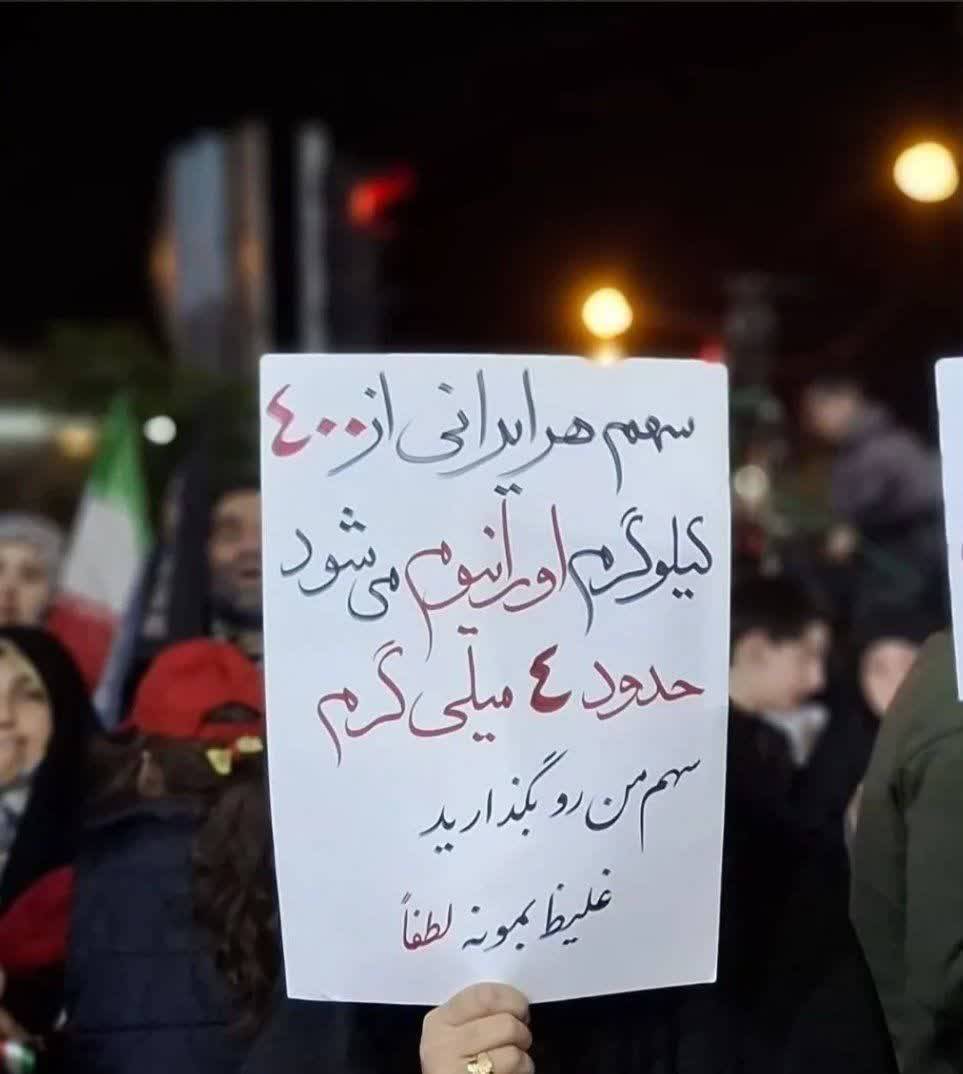 سهم هر ایرانی از ٤٠٠
کیلوگرم اورانیوم می‌شود
حدود ٤ میلی‌گرم
سهم من رو بگذارید
غلیظ بمونه لطفاً